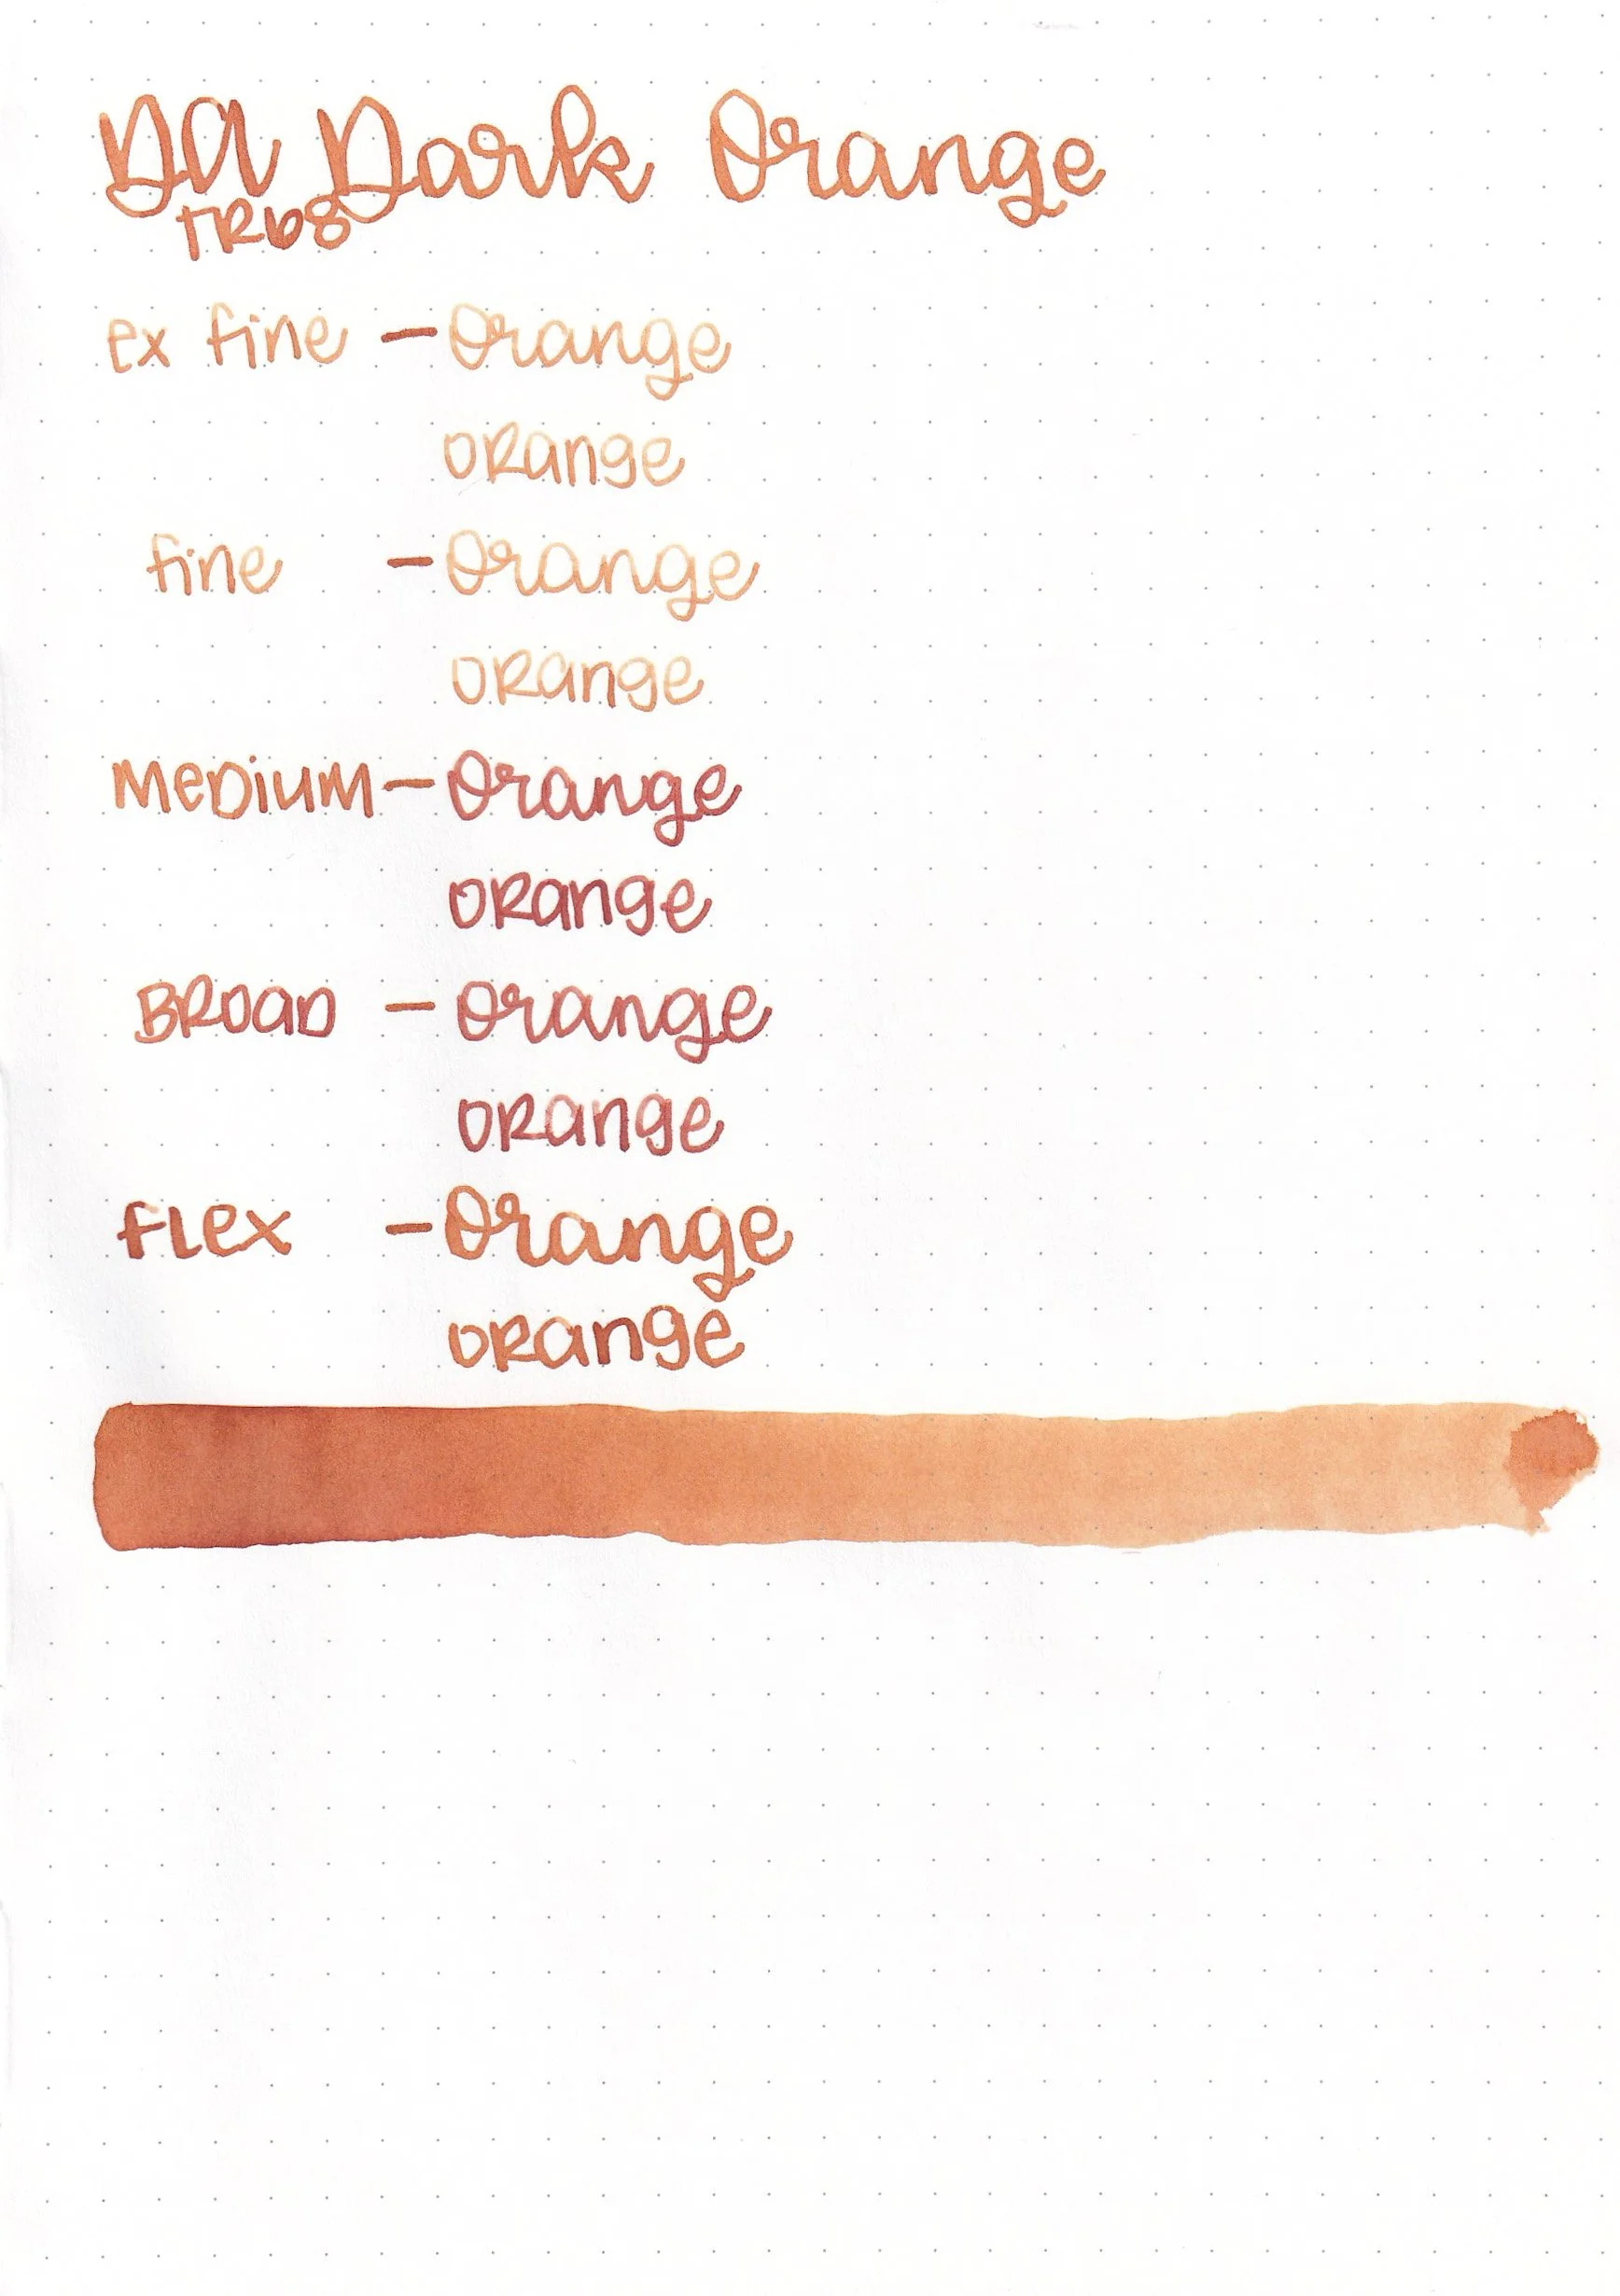 DA Dark Orange
TR68
ex fine - Orange
orange
fine - Orange
orange
Medium - Orange
orange
Broad - Orange
orange
flex - Orange
orange